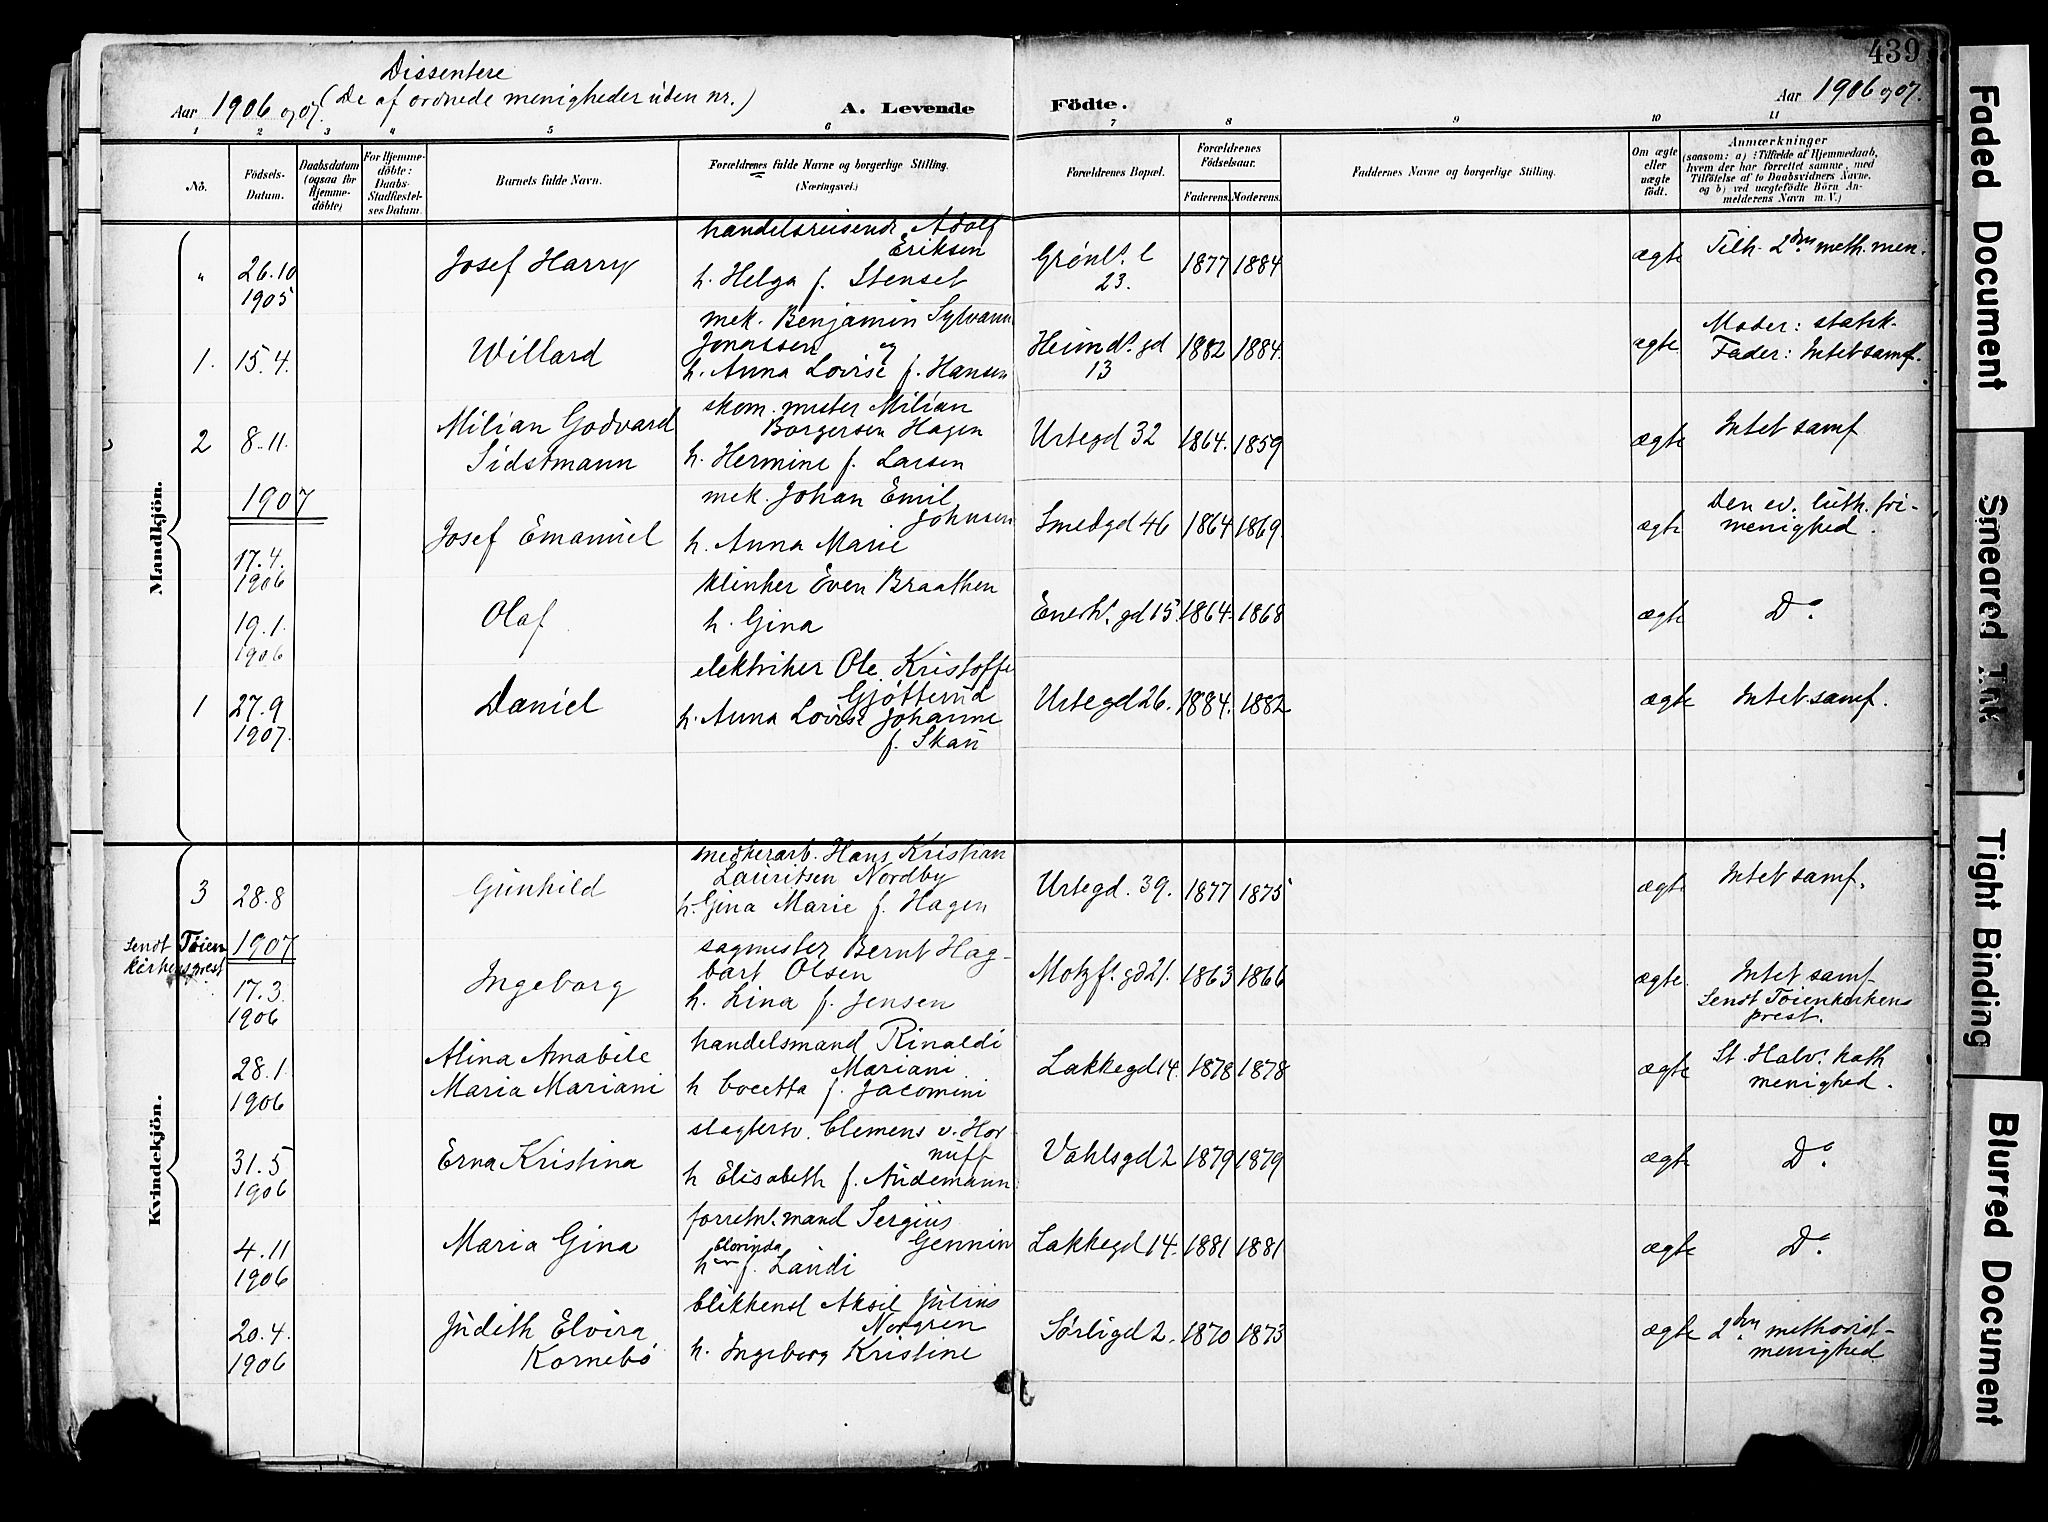 439
Dissentere
Aar 1906 og 07. (De af ordnede menigheder uden nr.)
A. Levende Födte.
Aar 1906 og 07.
1 2 3 4 5 6 7 8 9 10 11
No.
Födsels-
Datum.
Daabsdatum
(ogsaa for
Hjemme-
döbte)
For Hjemme-
döbte:
Daabs-
Stadfæstel-
ses Datum.
Barnets fulde Navn.
Forældrenes fulde Navne og borgerlige Stilling.
(Næringsvei.)
Forældrenes Bopæl.
Forældrenes
Födselsaar.
Faderens. Moderens.
Faddernes Navne og borgerlige Stilling.
Om ægte
eller
uægte
födt.
Anmærkninger
(saasom: a) i Tilfælde af Hjemmedaab,
hvem der har forrettet samme, med
Tilföielse af to Daabsvidners Navne,
og b) ved uægtefödte Börn An-
melderens Navn m. V.)
Mandkjön.
" 26.10
1905
Josef Harry
handelsreisende Adolf
Eriksen
h. Helga f. Stenset
Grønl. l
23.
1877 1884
ægte
Tilh. 2den meth. men.
1. 15.4.
Willard
mek. Benjamin Sylvann
Jonassen og
h. Anna Lovise f. Hansen
Heimds. gd
13
1882 1884.
ægte
Moder: statsk.
Fader: Intet samf.
2 8.11.
Milian Godvard
Sidstmann
skom. mester Milian
Borgersen Hagen
h. Hermine f. Larsen
Urtegd 32
1864. 1859
ægte
Intet samf
1907
17.4.
1906
Josef Emanuel
mek. Johan Emil
Johnsen
h. Anna Marie
Smedgd 46
1864 1869.
ægte
Den ev. luth. fri-
menighed.
19.1.
1906
Olaf
klinker Even Braathen
h. Gina
Enerh. gd 15.
1864. 1868
ægte
Do.
1 27.9
1907.
Daniel
elektriker Ole Kristoffe
Gjötterud
h. Anna Lovise Johanne
f. Skau
Urtegd 26.
1884. 1882
ægte
Intet samf.
Kvindekjön.
3 28.8
Gunhild
medkerarb. Hans Kristian
Lauritsen Nordby
h. Gina Marie f. Hagen
Urtegd. 39.
1877 1875
ægte
Intet samf.
Sendt Töien
kirkens prest
1907
17.3.
1906
Ingeborg
sagmester Bernt Hag-
bart Olsen
h. Lina f. Jensen
Motzf. gd 21.
1863 1866
ægte.
Intet samf
Sendt Töienkirkens
prest.
28.1.
1906
Alina Amabile
Maria Mariani
handelsmand Rinaldi
Mariani
h Cocetta f. Jacomini
Lakkegd 14.
1878 1878
ægte
St. Halv. kath
menighed.
31.5
1906
Erna Kristina
slagtersv. Clemens v. Hor
nuff
h Elisabeth f. Nüdemann
Vahlsgd 2
1879 1879
ægte
Do.
4.11
1906
Maria Gina
forretn. mand Sergius
Gennin
Clorinda
h f. Landi
Lakkegd 14.
1881 1881
ægte
Do.
20.4.
1906
Judith Elvira
Kornebö
blikkensl Aksel Julius
Norgren
h. Ingeborg Kristine
Sörligd 2.
1870 1873
ægte
2den methodist-
menighed
Faded Document
Smeared Ink
Tight Binding
Blurred Document